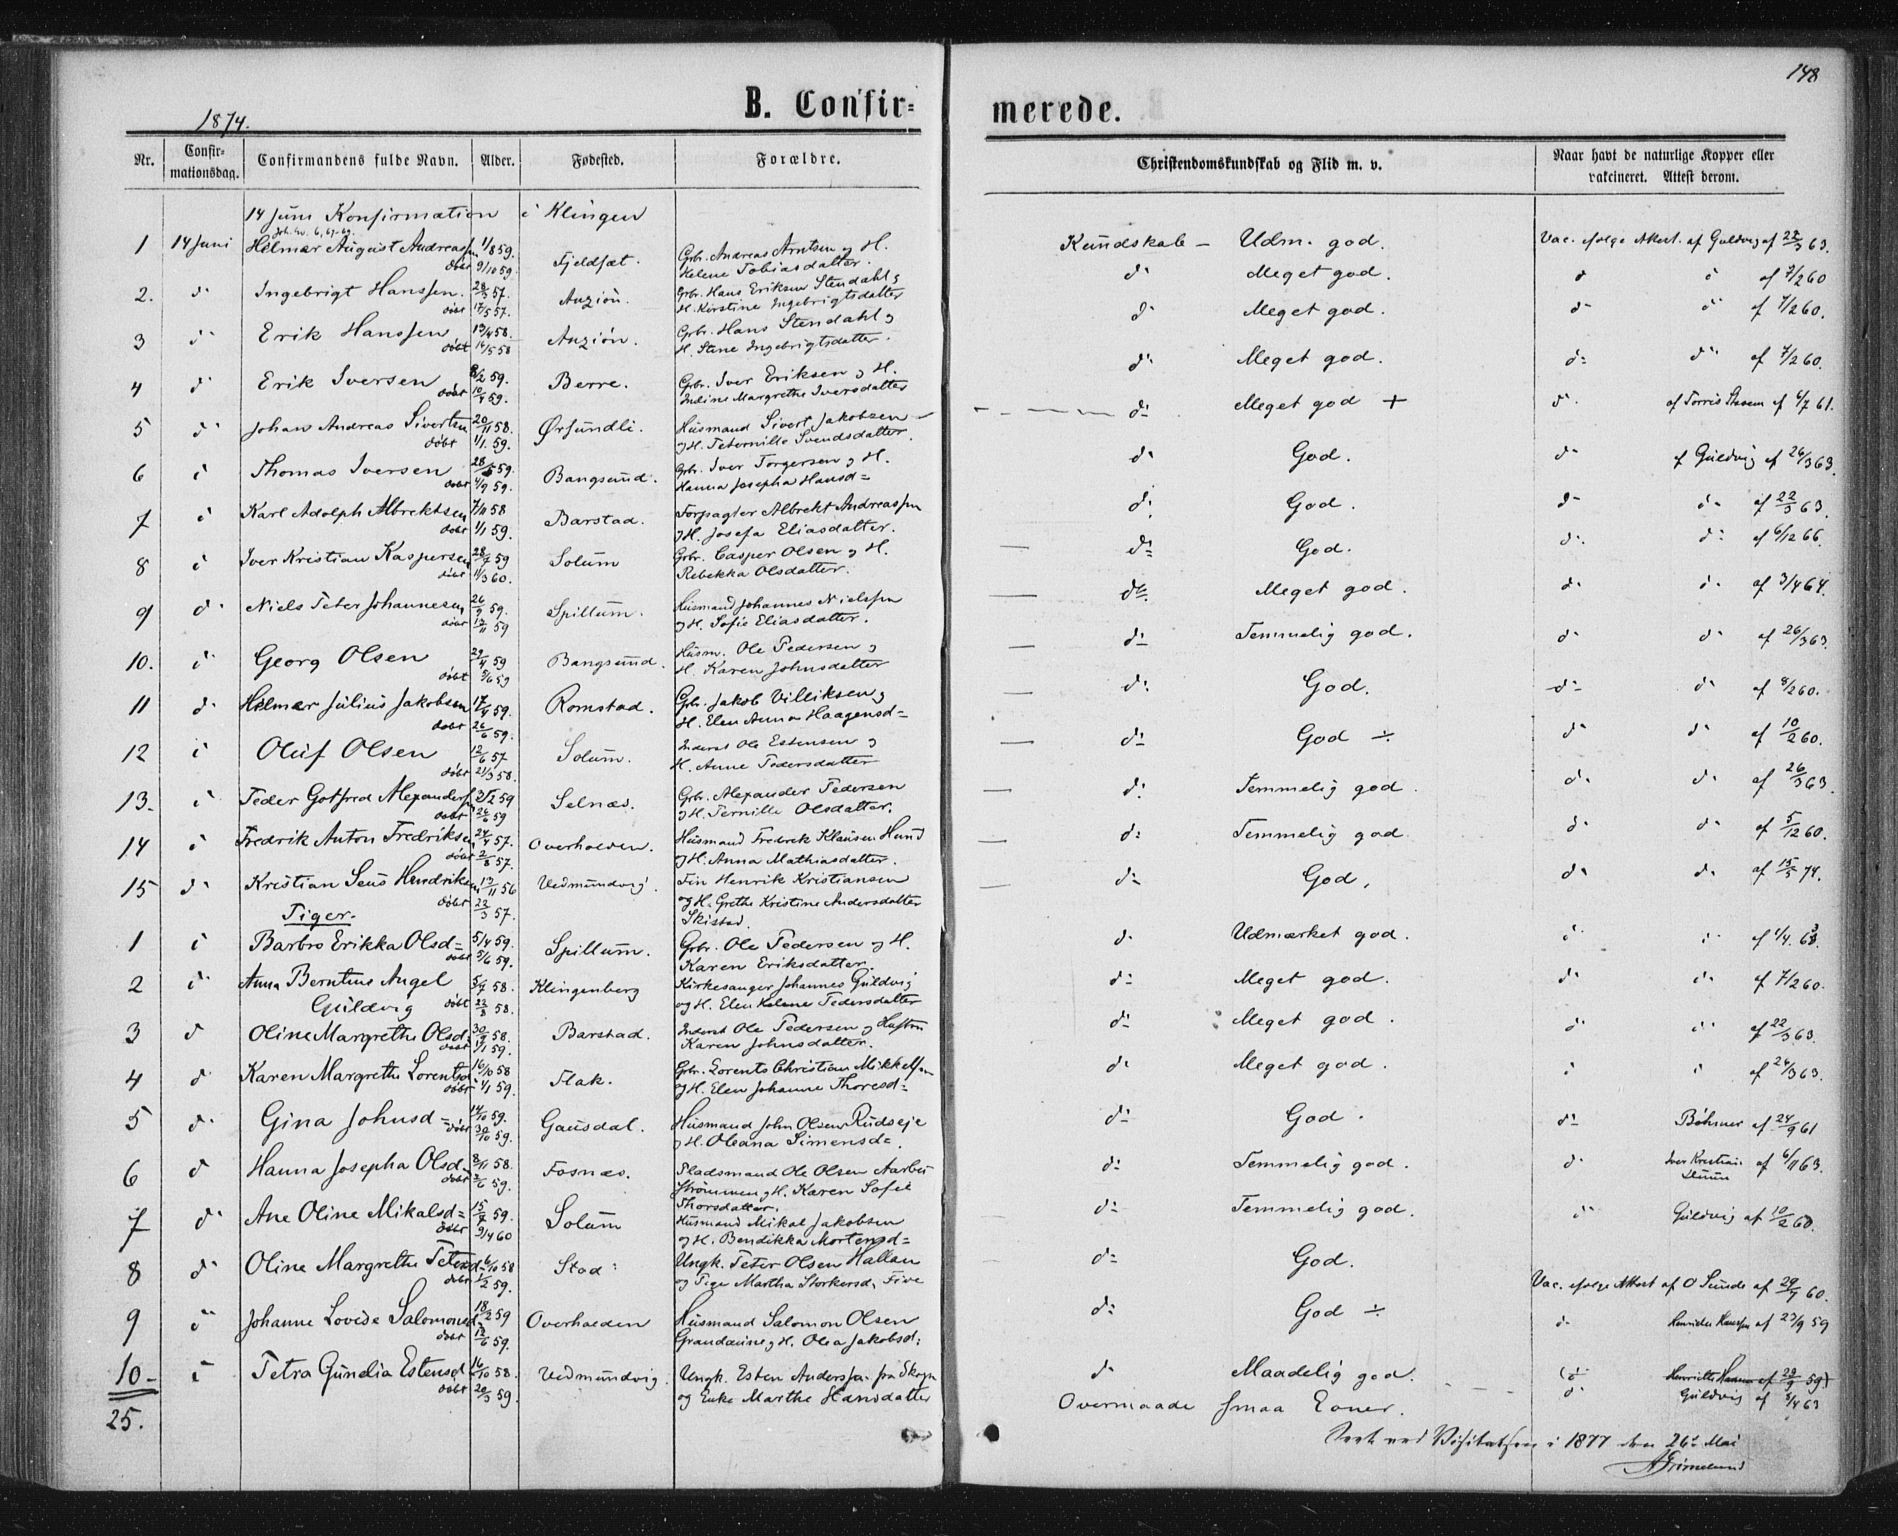 148
1874.
B. Confir=
merede.
Nr.
Confir-
mationsdag.
Confirmandens fulde Navn.
Alder.
Fødested.
Forældre.
Christendomskundskab og Flid m. v.
Naar havt de naturlige Kopper eller
vakcineret. Attest derom.
14 Juni Konfirmation i Klingen
1 14 Juni Helmer August Andreassen 1/8 59. Fjeldsæt. Grb. Andreas Arntsen og H. Kundskab – Udm. god. Vac. efolge Attest. af Guldvig af 22/3 63.
døbt 9/10 59. Helene Tobiasdatter.
2. d° Ingebrigt Hanssen. 28/3 57. Auziøn. Grb. Hans Eriksen Stendahl og d° Meget god. d° d° af 7/2 60
døbt 17/5 57. H. Kirstine Ingebrigtsdatter
3 d° Erik Hanssen 19/4 58. Auziøn. Grb. Hans Stendahl og d° Meget god. d° d° af 7/2 60.
døbt 14/5 58 H. Stine Ingebrigtsdatter.
4 d° Erik Iversen 8/2 59. Berre. Grb. Iver Eriksen og H. d° Meget god. d° d° af 7/2 60.
døbt 10/4 59. Indine Margrethe Iversdatter
5 d° Johan Andreas Sivertsen 20/11 58. Ørsundli. Husmand Sivert Jakobsen d° Meget god + d° af Torris Staven af 6/7 61.
døbt 1/1. 59. og H. Peternille Svendsdatter.
6 d° Thomas Iversen 28/5 59. Bangsund. Grb. Iver Torgersen og H. d° God. d° af Guldvig af 26/3 63.
døbt 4/9 59. Hanna Josepha Hansd=
7 d° Karl Adolph Albrektsen 7/11 58 Barstad. Forpagter Albrekt Andreassen d° God. d° d° af 22/3 63.
døbt 1/1 59. og H. Josefa Eliasdatter.
8 d° Iver Kristian Kaspersen 28/7 59 Solum Grb. Casper Olsen og H. d° God. d° d° af 6/12 66.
døbt 11/3 60. Rebekka Olsdatter.
9 d° Niels Peter Johannesen 26/9 59. Spillum. Husmand Johannes Nielssen d° Meget god. d° d° af 3/4 64.
døbt 13/11 59 og H. Sofie Eliasdatter.
10. d° Georg Olsen 29/4 59 Bangsund. Husm. Ole Pedersen og d° Temmelig god. d° d° af 26/3 63.
døbt 5/6 59 H. Karen Johnsdatter
11 d° Helmer Julius Jakobsen 17/4 59. Romstad. Grb. Jakob Villiksen og d° God. d° d° af 8/2 60.
døbt 26/6 59. H. Elen Anna Haagensd=
12 d° Oluf Olsen 12/6 57 Solum. Inderst Ole Estensen og d° God ÷ d° d° af 10/2 60.
døbt 21/3 58. H. Anne Pedersdatter
13. d° Peder Gotfred Alexandersen 2/2 59 Selnæs. Grb. Alexander Pedersen d° Temmelig god. d° d° af 26/3 63.
døbt 26/6 59 og H. Pernille Olsdatter.
14 d° Fredrik Anton Fredriksen 24/4 57. Overhalden. Husmand Fredrik Klausen Hund d° Temmelig god d° d° af 5/12 60.
døbt 2/8 57. og H. Anna Mathiasdatter.
15 d° Kristian Seus Hendriksen 13/11 56 Vedmundvig. Fin Henrik Kristiansen d° God. d° d° af 15/5 74.
døbt 22/3 57. og H. Grethe Kristine Andersdatter
Piger. Skistad.
1 d° Barbro Erikka Olsd= 5/4 59. Spillum. Grb. Ole Pedersen og H. d° Udmærket god. d° d° af 1/4. 63.
døbt 5/6 59. Karen Eriksdatter.
2 d° Anna Berntine Angel 5/7 58. Klingenberg Kirkesanger Johannes Guldvig d° Meget god. d° d° af 7/2 60.
Guldvig døbt 22/8 58. og H. Elen Helene Pedersdatter
3 d° Oline Margrethe Olsd= 30/9 58. Barstad. Inderst Ole Pedersen og Hustru d° Meget god. d° d° af 22/3 63.
døbt 1/1 59. Karen Johnsdatter.
4 d° Karen Margrethe Lorentsd 16/10 58 Flak. Grb. Lorents Christian Mikkelsen d° Meget god. d° d° af 26/3 63.
døbt 1/1 59. og H. Elen Johanne Thoresd=
5 d° Gina Johnsd= 14/10 59. Gausdal. Husmand John Olsen Rudseje d° God. d° Bøhmer af 24/9 61
døbt 30/10 59. og H. Oleana Simensd=.
6 d° Hanna Josepha Olsd= 8/11 58. Fosnæs. Pladsmand Ole Olsen Aarbu d° Temmelig god. d° Iver Kristian af 6/11 63.
døbt 2/6 59. Strømmen og H. Karen Sofie
Thorsdatter.
7 d° Ane Oline Mikalsd= 15/7 59. Solum Husmand Mikal Jakobsen d° Temmelig god. d° Guldvig af 10/2 60.
døbt 9/4 60 og H. Bendikka Mortensd=
8 d° Oline Margrethe Petersd= 6/10 58 Stad Ungk. Peter Olsen Hallan d° God. Vac. efolge Attest af O Sunde af 29/9 60.
døbt 1/2 59. og Pige Martha Storkersd. Five
9 d° Johanne Lovise Salomonsd 18/2 59 Overhalden Husmand Salomon Olsen d° God ÷ d° Henriette Hansen af 23/9 59
døbt 12/6 59. Grandaune og H. Olea Jakobsd:
10 d° Petra Gunelia Estensd 16/10 58. Vedmundvig. Ungk. Esten Anderssen fra Skage d° Maadelig god. (d° Henriette Hansen af 23/9 59)
døbt 20/3 59. og Enke Marthe Hansdatter d° Guldvig af 8/4 63
25. Overmaade smaa Evner.
Seet ved Visitatsen i 1877 den 26de Mai
AGrimelund